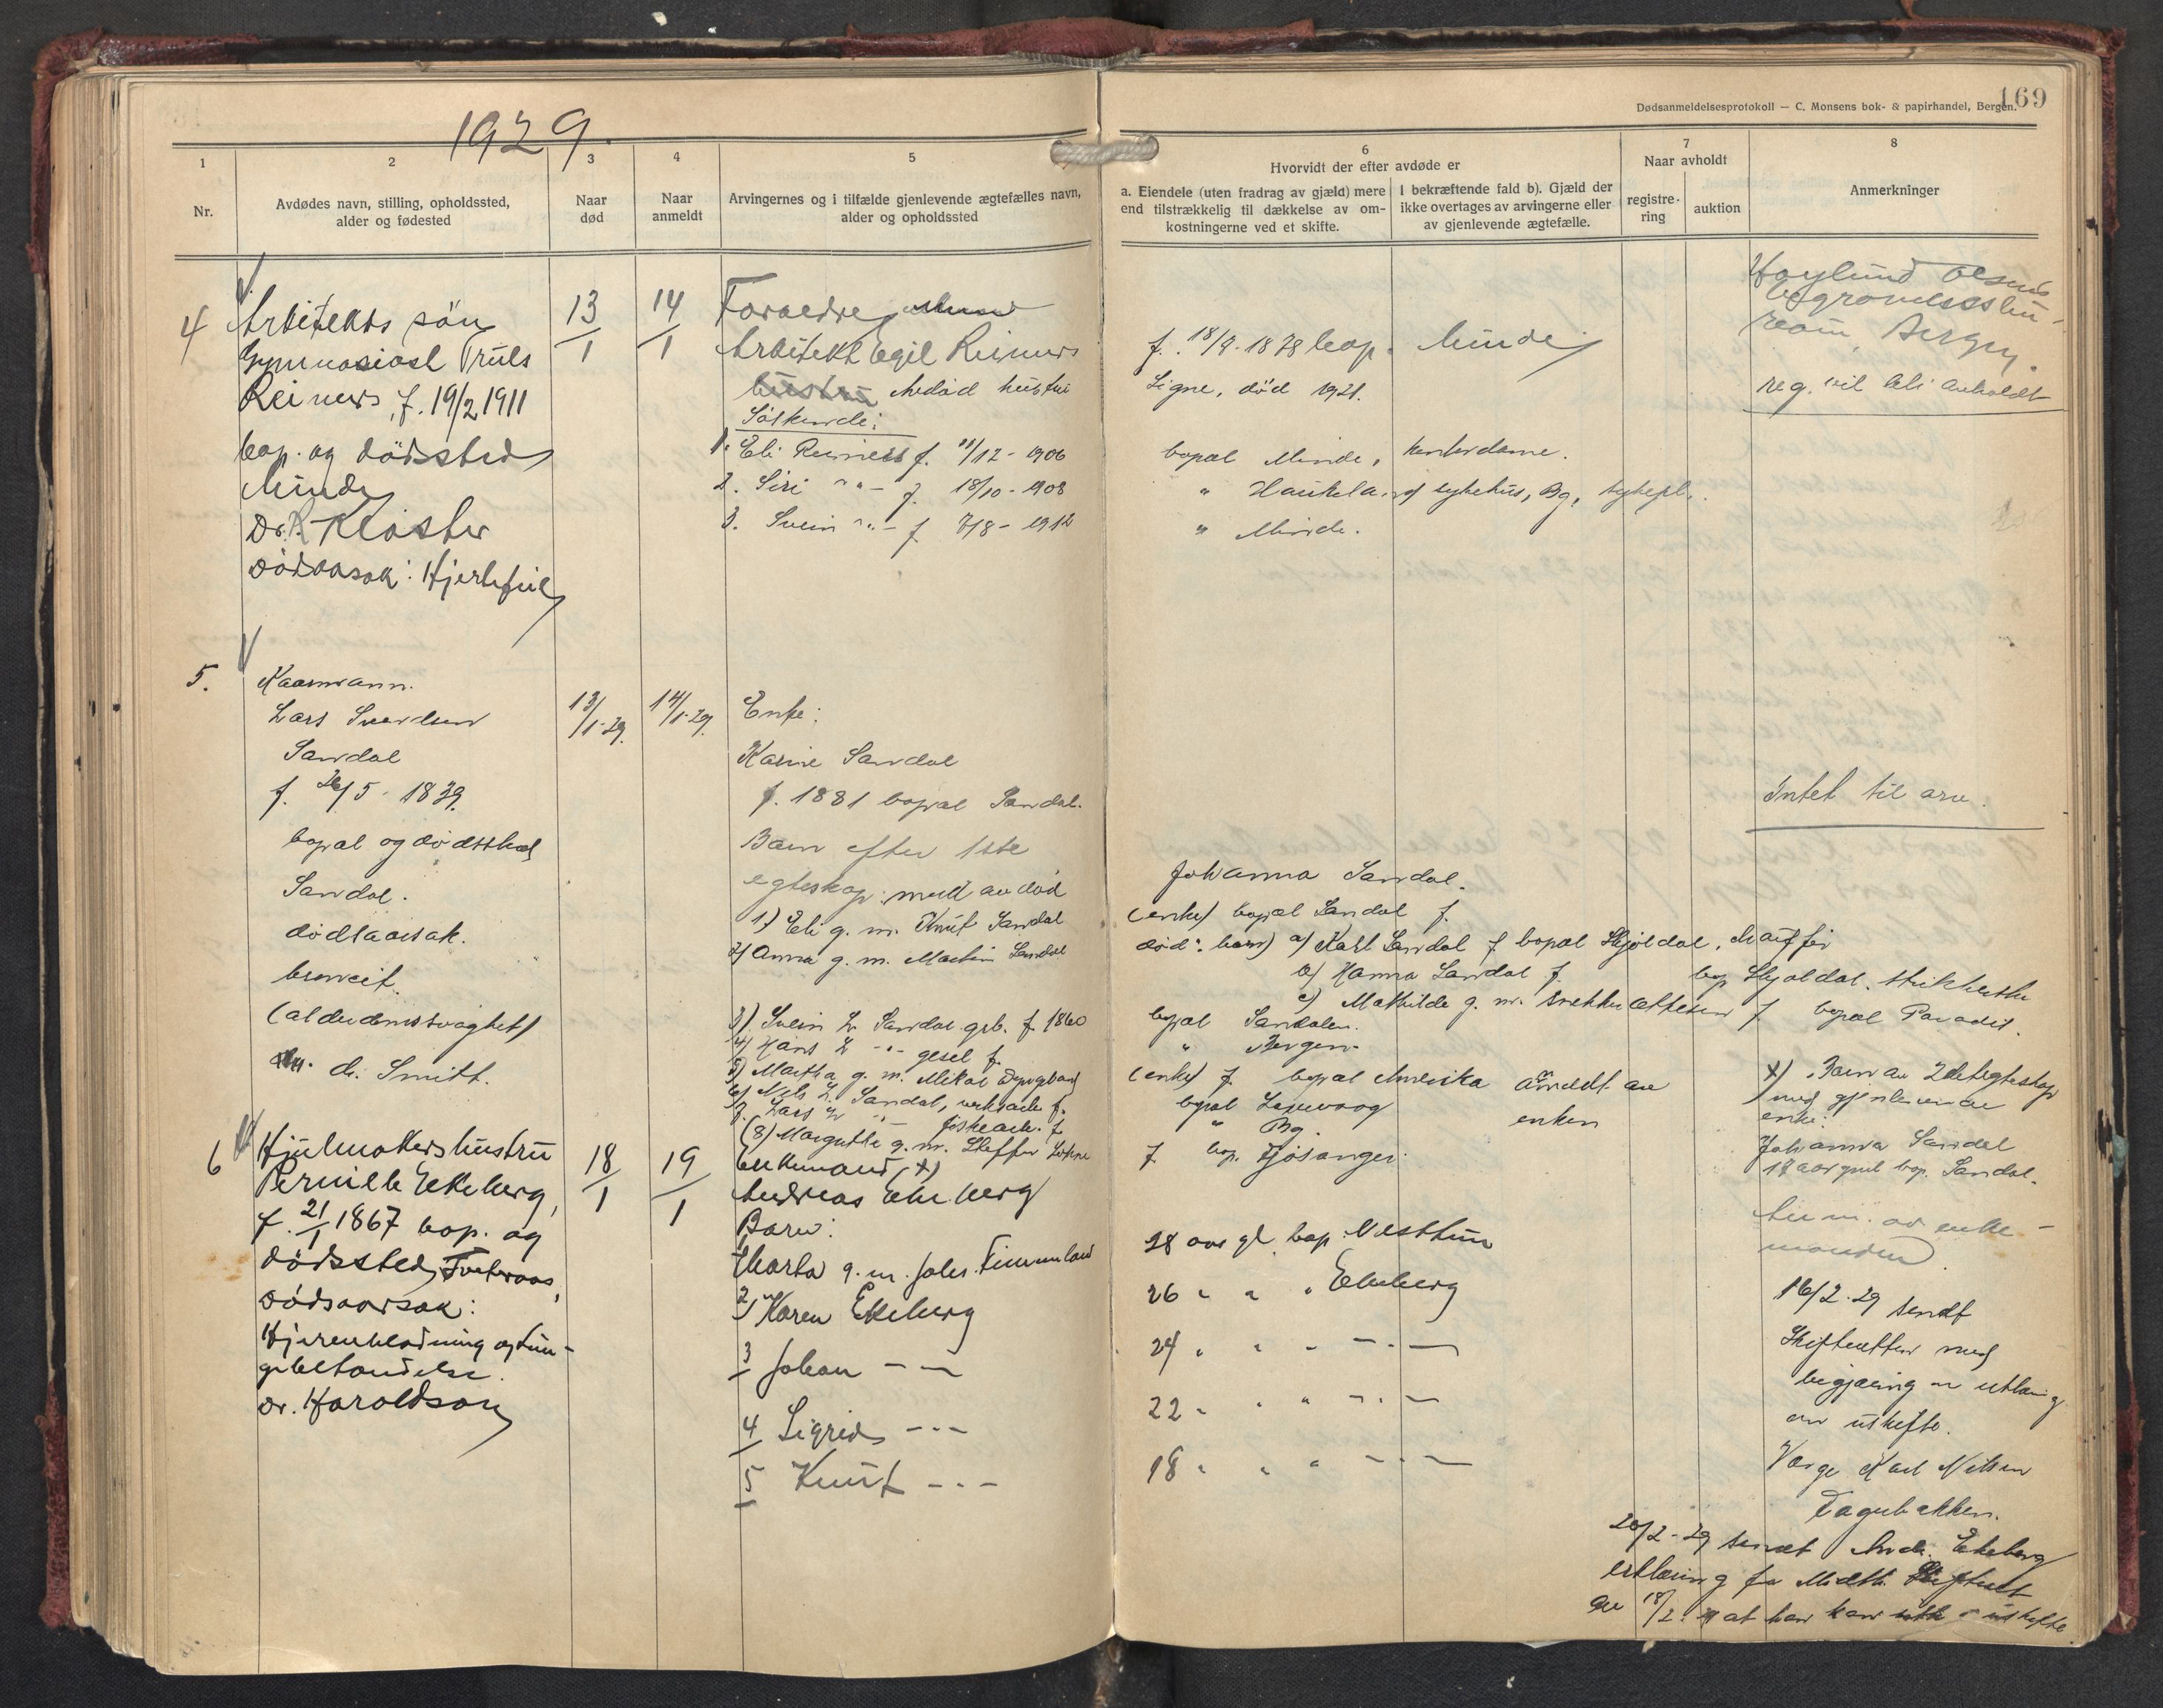 169
Dødsanmeldelsesprotokoll — C. Monsens bok- & papirhandel, Bergen.
1929.
1
2
3
4
5
6
7
8
Nr.
Avdødes navn, stilling, opholdssted,
alder og fødested
Naar
død
Naar
anmeldt
Arvingernes og i tilfælde gjenlevende ægtefælles navn,
alder og opholdssted
Hvorvidt der efter avdøde er
a. Eiendele (uten fradrag av gjæld) mere
end tilstrækkelig til dækkelse av om-
kostningerne ved et skifte.
I bekræftende fald b). Gjæld der
ikke overtages av arvingerne eller
av gjenlevende ægtefælle.
Naar avholdt
registre-
ring
auktion
Anmerkninger
4
Arkitekts søn
Gymnasiast Truls
Reimers, f. 19/2 1911
bop. og dödssted
Minde
Dr. Kloster
dödsaarsak: Hjertefeil
13/1
14/1
Foraeldre
Arkitekt Egil Reimers
f. 18/9. 1878 bop. Minde
avdöd hustru
Signe, död 1921.
Söskende:
1. Eli Reimers f. 11/12 - 1906
bopæl Minde, kontordame.
2. Siri - " - f. 18/10 - 1908
" Haukeland sykehus, Bg, sykepl.
3. Svein - " - f 7/8 - 1912
" Minde.
Bergen.
reg. vil bli avholdt
5.
Kaarmann.
Lars Svendsen
Sandal
f. 26/5 - 1839.
bopæl og dødssted
Sandal.
dødsaarsak.
(alderdomssvaghet)
dr. Smitt.
13/1-29.
14/1-29.
Enke:
Karine Sandal
f. 1881 bopæl Sandal.
Barn efter 1ste
egteskap: med avdød
Johanna Sandal.
1) Eli g. m. Knut Sandal
(enke) bopæl Sandal f.
2) Anna g. m. Martin Sandal
død: barn) a) Karl Sandal f bopæl Skjoldal,
b) Hanna Sandal f. bop Skjoldal.
c) Mathilde g. m. f bopæl Paradis.
3) Svein L. Sandal grb. f. 1860
bopæl Sandalen.
4) Hans L. - " - f.
" Bergen.
5) Martha g. m. Mikal
(enke) f. bopæl Amerika anmeldt av
enken
6) Nils L. Sandal, f.
bopæl
7. Lars L. - " - f
" Bg.
(8) Margrethe g. m. Steffen
f bop. Fjösanger.
Intet til arv.
x) Barn av 2det egteskap
med gjenlevende
enke:
Johanna Sandal
18 aar gml bop. Sandal.
6
Hjulmakers hustru
Pernille Ekeberg,
f. 21/1 1867 bop. og
dödssted
dödsaarsak:
Hjerneblødning og lun-
gebetændelse.
Dr. Haroldson
18/1
19/1
Enkemand (x)
Andreas Ekeberg
Barn:
1) Marta g. m. Johs. Timmerland
28 aar gl. bop. Nesttun
2) Karen Ekeberg
26 " " " Ekeberg
3 Johan - -
24 " " " - " -
4 Sigrid - - -
22 " " " - " -
5 Knut - - -
18 " " " - " -
Anm. av enke-
manden.
16/2.29 sendt
Skifteretten med
begjæring om utlæg
av uskifte.
Verge Karl Nilsen
20/2-29 sendt Andr. Ekeberg
erklæring fra Midth. Skifterett
av 18/2.29 at han kan sitte i uskifte.